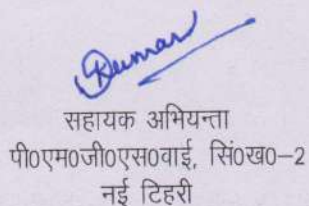 Kumar
सहायक अभियन्ता
पी0एम0जी0एस0वाई, सिं0ख0–2
नई टिहरी